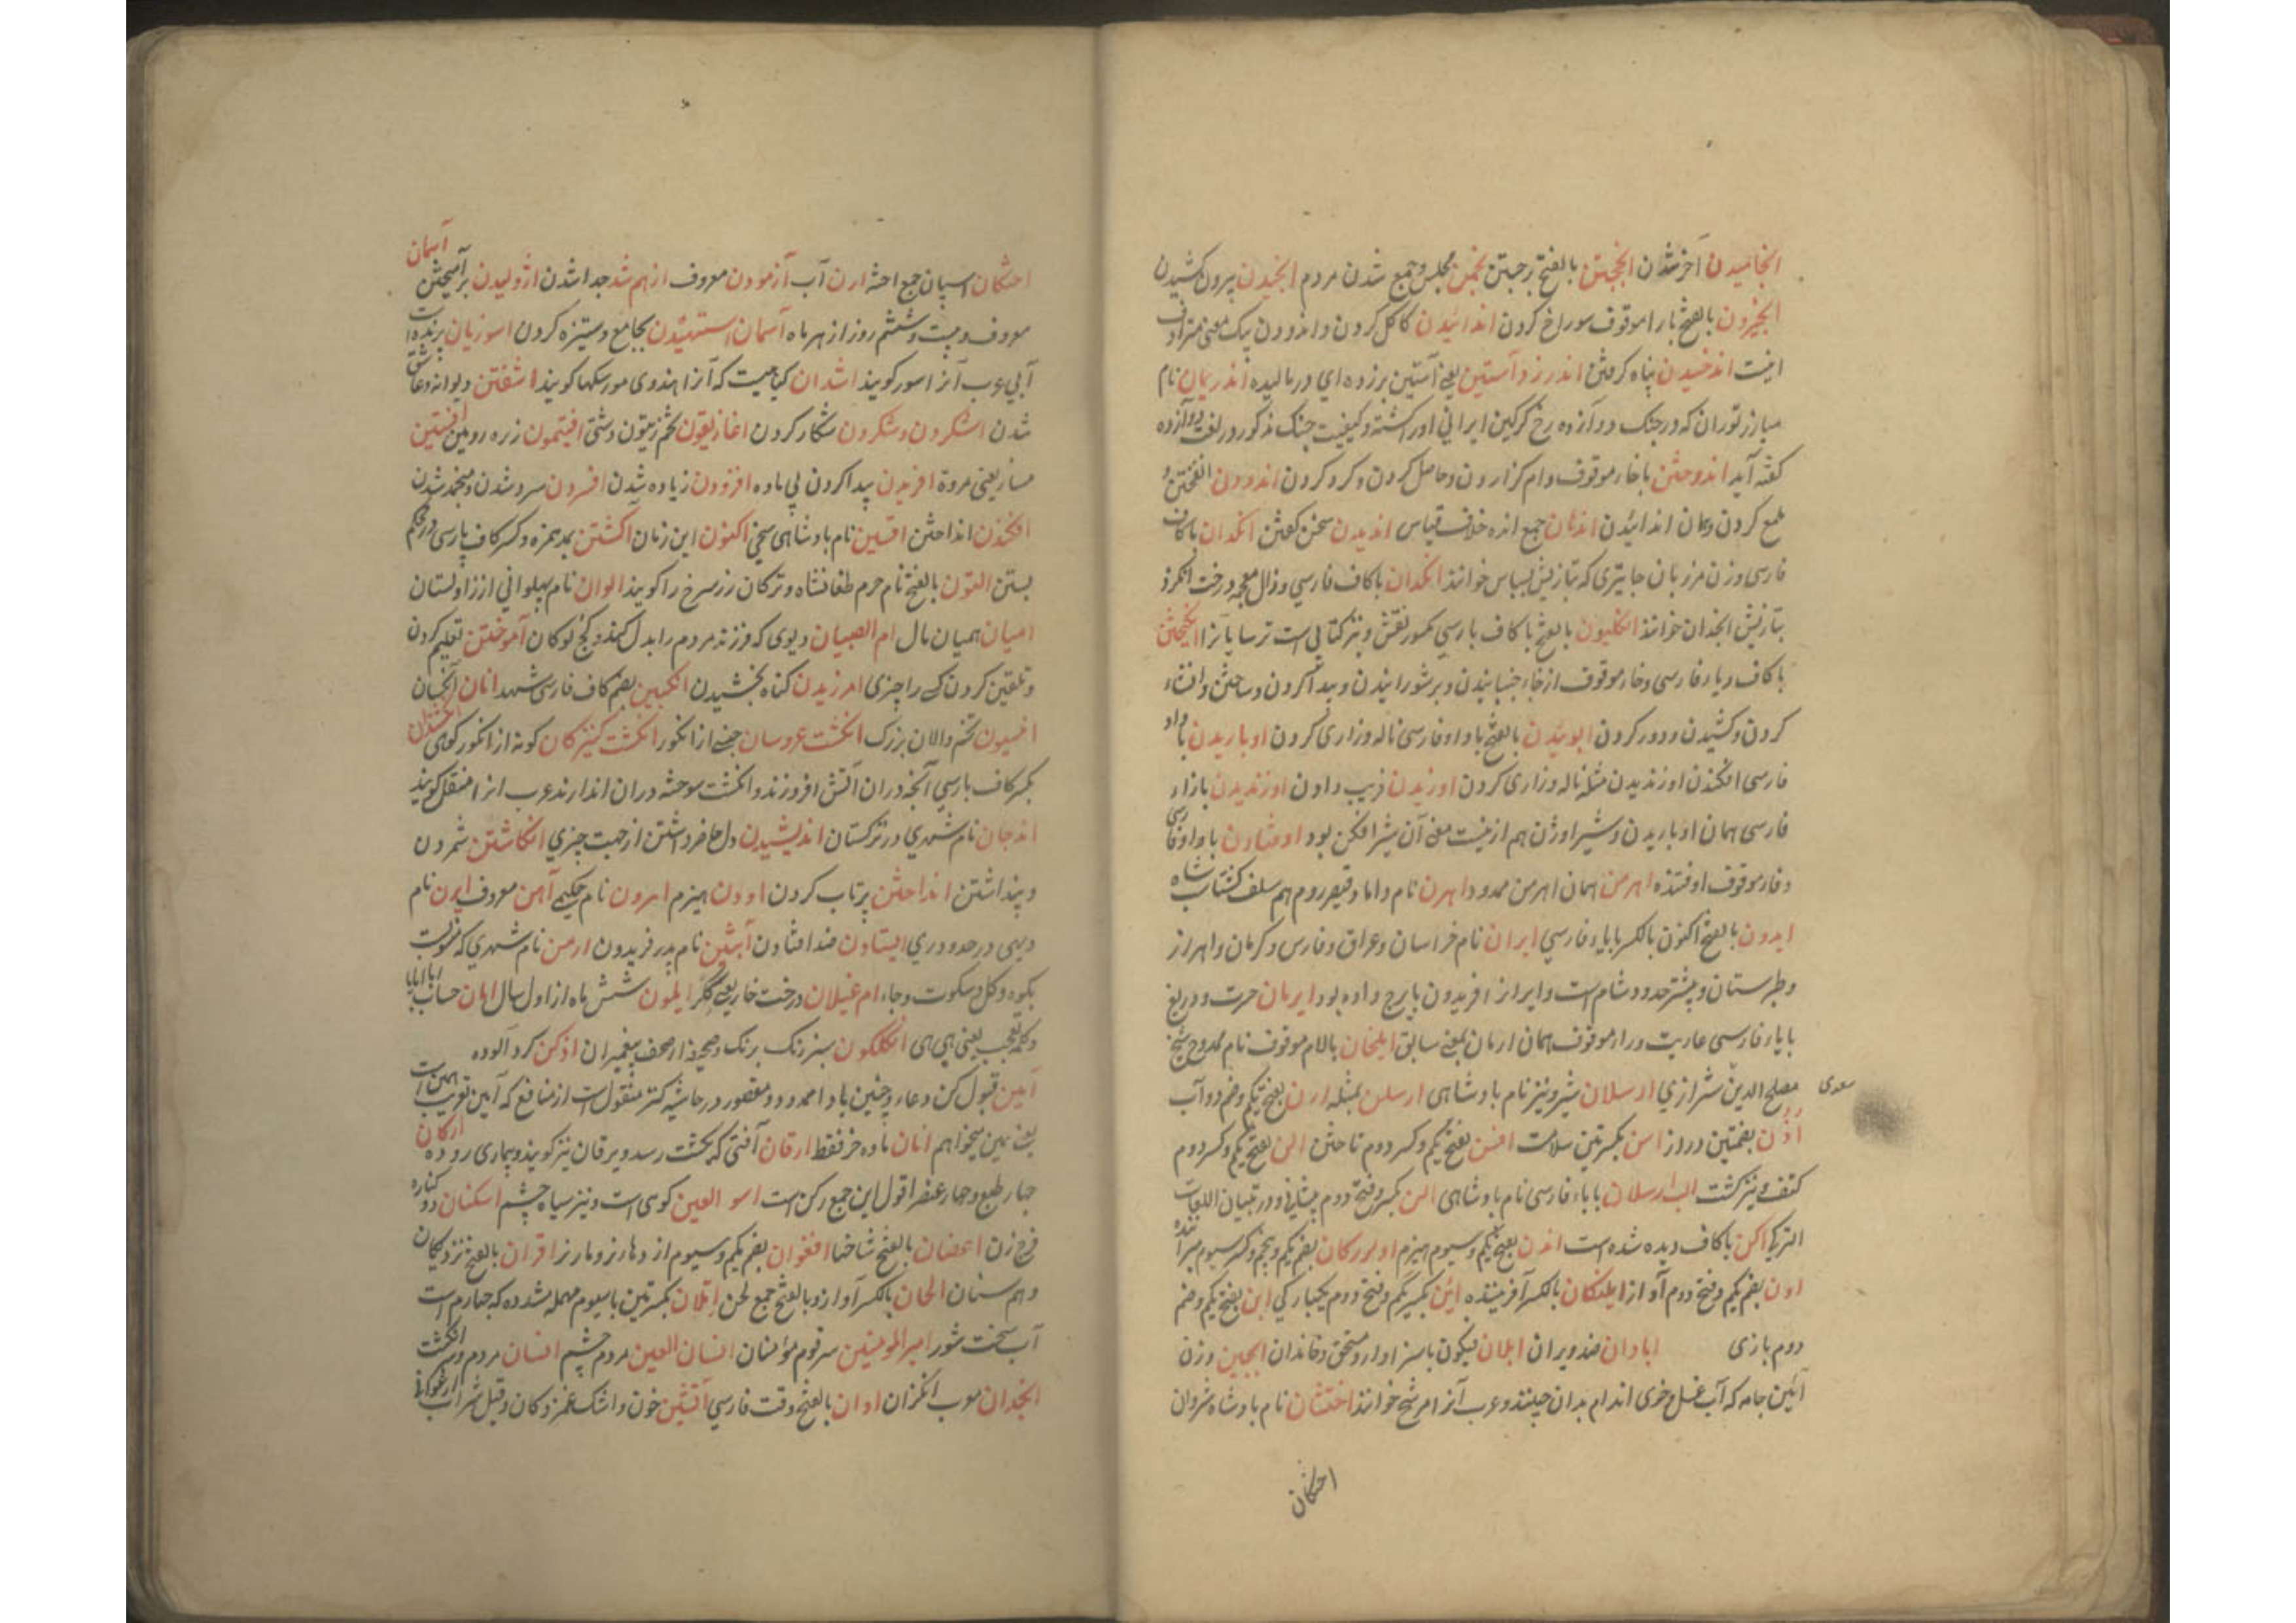 انجامیدن آخر شدن انججتن بالفتح رجبتن انجمن مجلس و جمع شدن مردم انجیدن بیرون کشیدن
انجیزون بالفتح با را موقوف سوراخ کردن اندائیدن کاکل کردن و اندودن بیک معنی مترادف
اینت اندخسیدن پناه گرفتن اندر زد آستین یعنی آستین برزده ای ورمالیده اندریمان نام
مبارز توران که در جنک دوازده رخ کرکین ایرانی اورا کشته و کیفیت جنک مذکور در لغت دوازده
گفته آید اندوختن با خاء موقوف وام کزاردن و حاصل کردن و کرد کردن اندودن
ملمع کردن و همان اندائیدن اندان جمع انده خلاف قیاس اندیدن سخن گفتن انکدان باکاف
فارسی وزن مرزبان جایتری که بتازیش بسباس خوانند انکدان باکاف فارسی و ذال معجمه درخت انکرد
بتازیش انجدان خوانند انکلیون بالفتح باکاف پارسی نقش و نیز کتابی است ترسایانرا انکیختن
باکاف و یاء فارسی و خاء موقوف از جاء جنبانیدن و برشورانیدن و پیدا کردن و ساختن و افشاء
کردن و کشیدن و دور کردن انوئیدن بالفتح با واو فارسی ناله و زاری کردن اوباریدن با واو
فارسی افکندن اوزندیدن مثله ناله و زاری کردن اورندیدن فریب دادن اوژندیدن بازاء
فارسی همان اوباریدن و شیر اوژن هم ازینست معنی آن شیر افکن بود اوفتادن با واو فارسی
و فاء موقوف اوفتنده اهرمن همان اهریمن ممدود اهرن نام داماد قیصر روم هم سلف کشتاب شاه
ایدون بالفتح اکنون بالکسر بایاء فارسی ایران نام خراسان و عراق و فارس و کرمان و اهواز
و طبرستان و بیشتر حدود شام است و ایران افریدون بایرج داده بود ایرمان حسرت و دریغ
بایاء فارسی عاریت و راء موقوف همان ارمان بمعنی سابق ایلخان بالام موقوف نام ممدوح شیخ
سعدی
مصلح الدین شیرازی ارسلان شیر و نیز نام پادشاهی ارسلن بمثله ارن بفتح یکم و ضم دوم آب
اذن بضمتین در روز اسن بکسرتین سلامت افسن بفتح یکم و کسر دوم تاختن الن بفتح یکم و کسر دوم
کتف و نیز کشت الب ارسلان باباء فارسی نام پادشاهی الن بکسر و فتح دوم پیشانی و در تبیان اللغات
الترکی اکن باکاف دیده شده است اندن بفتح یکم و سیوم هیزم
اون بضم یکم و فتح دوم آواز ایلدکان بالکسر آفریننده این بکسر یکم و فتح دوم یکبارکی ابن بفتح یکم و ضم
دوم بازی ابادان ضد ویران ابلان نیکون باسزاوار و مستحق و خاندان ابجین وزن
آئین جامه که آب غسل و خوی اندام بدان چینند و عرب آنرا مرشح خوانند اختشان نام پادشاه شروان
احتکان
آسمان
احتکان اسپان جمع احته ارن آب آزمودن معروف از هم شد جدا شدن اژولیدن برآمیختن
معروف و بیست و ششم روز از هر ماه آسمان استهیدن لجاج و ستیزه کردن اسوزیان پرنده است
آبی عرب آنرا سور کویند اشدان کیاهیست که آنرا هندوی مورسکها کویند اشفتن دیوانه و عاشق
شدن اشکردن و شکردن شکار کردن اغازیقون تخم زیتون دشتی افیتمون زره رومین افستین
ساز یعنی مروة افریدن پیدا کردن بی ماده افزودن زیاده شدن افسردن سرد شدن و منجمد شدن
افکندن انداختن افسین نام پادشاهی سخی اکنون این زمان آکشتن بمد همزه و کسر کاف پارسی در محکم
بستن التون بالفتح نام حرم طغانشاه و ترکان زر سرخ را کویند الوان نام پهلوانی از زاولستان
امیان همیان مال ام الصبیان دیوی که فرزند مردم را بدل کند و کج لوکان آموختن تعلیم کردن
و تلقین کردن کسی را چیزی امرزیدن کناه بخشیدن انکبین بضم کاف فارسی شهد انان آنجنان
انیسون تخم والان بزرک انکشت عروسان جنسی از انکور انکشت کنیزکان کونه از انکور کوهی
بکسر کاف پارسی آنچه دران آتش افروزند و انکشت سوخته دران اندازند عرب انرا منقل کویند
اندجان نام شهری در ترکستان اندیشیدن دل حاضر داشتن از جهت چیزی انکاشتن شمردن
و پنداشتن انداختن پرتاب کردن اودن هیزم امرون نام حکیمی آهن معروف ایرن نام
دیهی در حدود ری ایستادن ضد افتادن آبتین نام پدر فریدون ارمن نام شهری که منسوبست
بکوه و کل و سکوت و جاء ام غیلان درخت خار یعنی کیکر ایلمون شش ماه از اول سال ابان حساب
و کلمه تعجب یعنی هی هی انکلکون سبز رنک برنک و صحیفه از صحف پیغمبران اذکن کرد آلوده
آمین قبول کن دعاء و چنین باد ممدود و مقصور در حاشیه کنز منقول است از منافع که آمین تعریب همین است
یعنی همین میخواهم اتان ماده خر فقط ارقان آفتی که بکشت رسد و یرقان نیز کویند و بیماری رو و ده ارکان
چهار طبع و چهار عنصر اقول این جمع رکن است اسو العین کوهی است و نیز سیاه چشم اسکنان دو کناره
فرج زن اغصان بالفتح شاخها افغوان بضم یکم و سیوم اژدها نر و مار نر اقران بالفتح نزدیکان
و هم سنان الحان بالکسر آواز و بالفتح جمع لحن اتلان بکسرتین باسیوم مهمله مشدده که چهارم است
آب سخت شور امیرالمومنین سر قوم مؤمنان انسان العین مردم چشم انسان مردم و سر انکشت
انجدان معرب انکژان اوان بالفتح وقت فارسی آتشین خون و اشک غمزدکان و قیل شراب ارغوانی